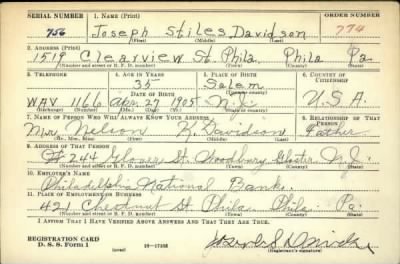 SERIAL NUMBER 1. NAME (Print) ORDER NUMBER
756 Joseph Stiles Davidson 774
(First) (Middle) (Last)
2. ADDRESS (Print)
1519 Clearview St. Phila. Phila Pa
(Number and street or R. F. D. number) (Town) (County) (State)
3. TELEPHONE 4. AGE IN YEARS 5. PLACE OF BIRTH 6. COUNTRY OF CITIZENSHIP
35 Salem
DATE OF BIRTH (Town or county)
WAV 1166 Apr. 27 1905 N.J. U.S.A.
(Exchange) (Number) (Mo.) (Day) (Yr.) (State or country)
7. NAME OF PERSON WHO WILL ALWAYS KNOW YOUR ADDRESS 8. RELATIONSHIP OF THAT PERSON
Mr. Nelson K. Davidson Father
(Mr., Mrs., Miss) (First) (Middle) (Last)
9. ADDRESS OF THAT PERSON
244 Glover St. Woodbury Gloster N.J.
(Number and street or R. F. D. number) (Town) (County) (State)
10. EMPLOYER'S NAME
Philadelphia National Bank
11. PLACE OF EMPLOYMENT OR BUSINESS
421 Chestnut St Phila. Phila. Pa.
(Number and street or R. F. D. number) (Town) (County) (State)
I AFFIRM THAT I HAVE VERIFIED ABOVE ANSWERS AND THAT THEY ARE TRUE.
REGISTRATION CARD
D. S. S. Form 1 (over) 16—17105 (Registrant's signature)